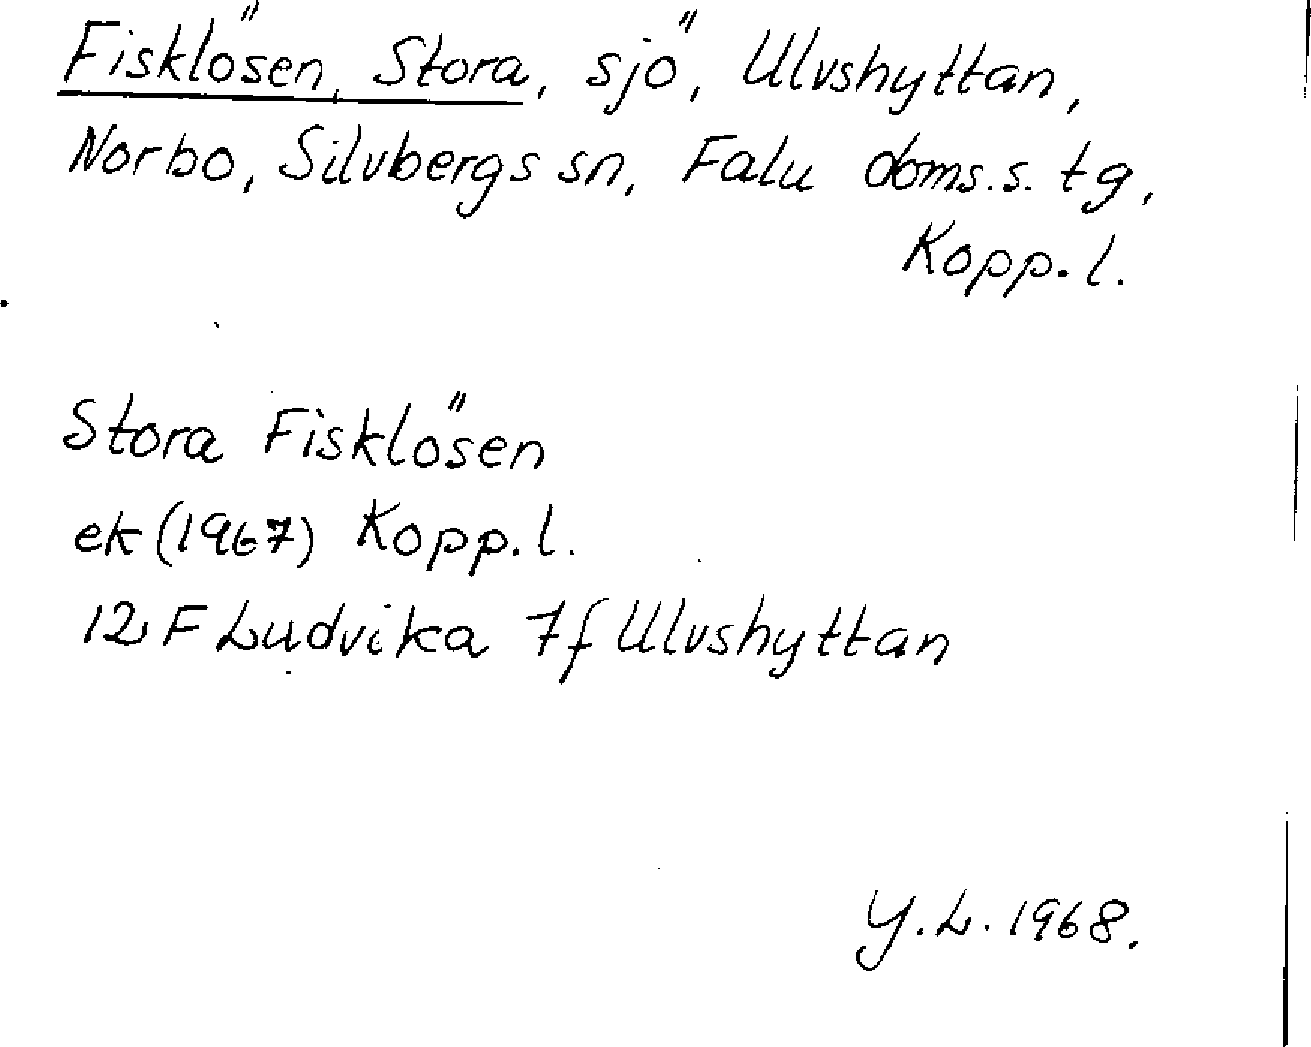 Fisklösen, Stora, sjö, Ulvshyttan,
Norbo, Silvbergs sn, Falu doms.s. tg,
Kopp.l.
Stora Fisklösen
ek (1967) Kopp.l.
12 F Ludvika 7f Ulvshyttan
Y.L. 1968.